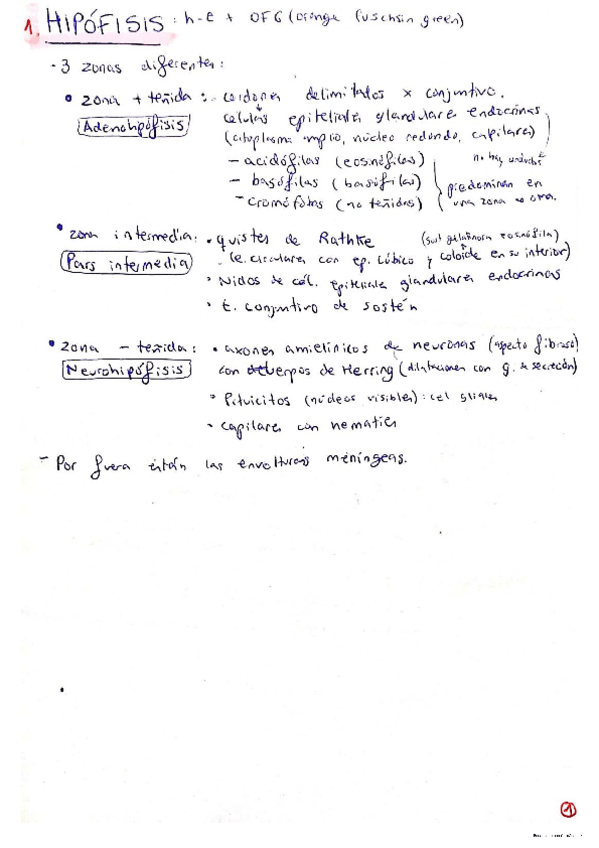 1. HIPÓFISIS : h-e + OFG (orange fuschsin green)
- 3 zonas diferentes:
• zona + teñida : - cordones delimitados x conjuntivo.
Adenohipófisis
células epiteliales glandulares endocrinas
(citoplasma amplio, núcleo redondo, capilares)
- acidófilas (eosinófilas) no hay
- basófilas (basófilas) predominan en
- cromófobas (no teñidas) una zona u otra.
• zona intermedia: • quistes de Rathke (sust gelatinosa eosinófila)
Pars intermedia
(e. circulares con ep. cúbico y coloide en su interior)
• Nidos de cél. epiteliales glandulares endocrinas
• t. conjuntivo de sostén
• zona - teñida : • axones amielínicos de neuronas (aspecto fibroso)
Neurohipófisis
con cuerpos de Herring (dilataciones con g. de secreción)
• Pituicitos (núcleos visibles) : cel gliales
• capilares con hematíes
- Por fuera están las envolturas meníngeas.
1